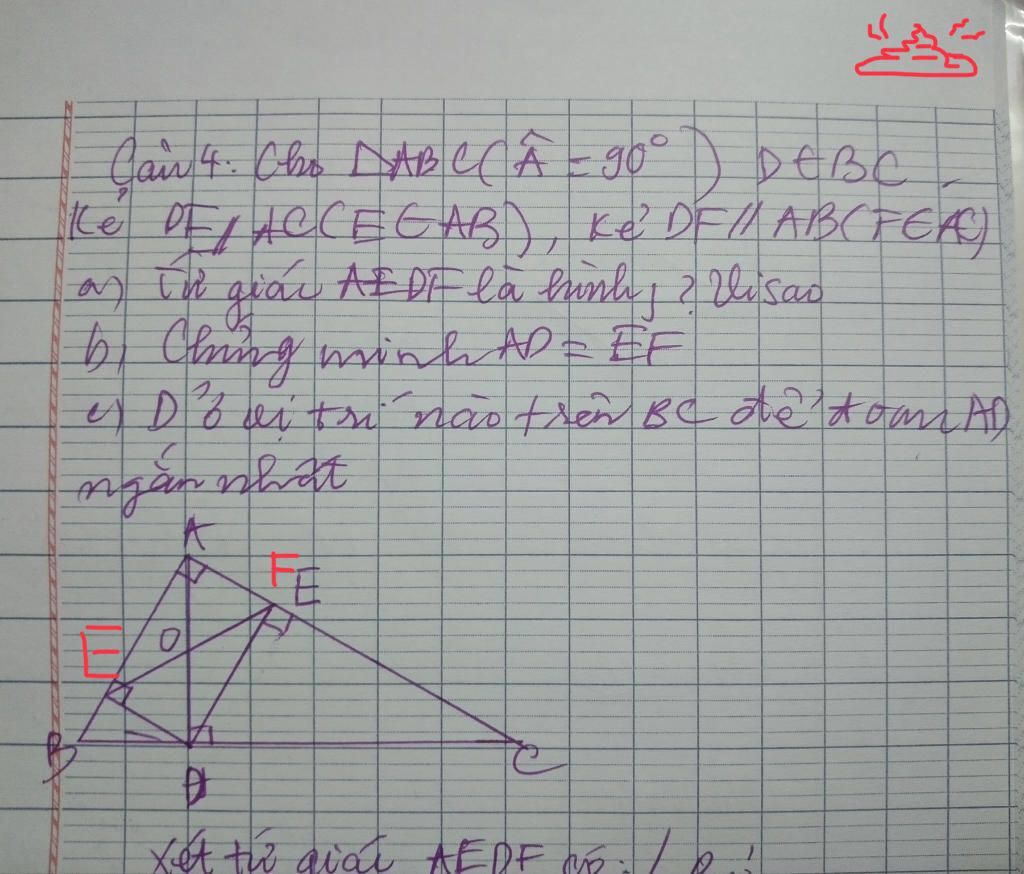 Câu 4: Cho ΔABC (Â = 90°) D∈BC
Kẻ DE // AC (E∈AB), kẻ DF // AB (F∈AC)
a) Tứ giác AEDF là hình j? Vì sao
b) Chứng minh AD = EF
c) D ở vị trí nào trên BC để đoạn AD
ngắn nhất
A
F
E
O
E
B
D
C
Xét tứ giác AEDF có: